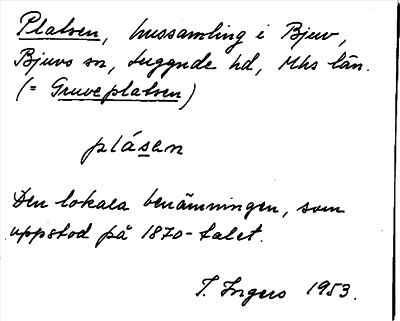 Platsen, hussamling i Bjuv,
Bjuvs sn, Luggude hd, Mhs län.
(= Gruveplatsen)
plásan
Den lokala benämningen, som
uppstod på 1870-talet.
T. Ingers 1953.